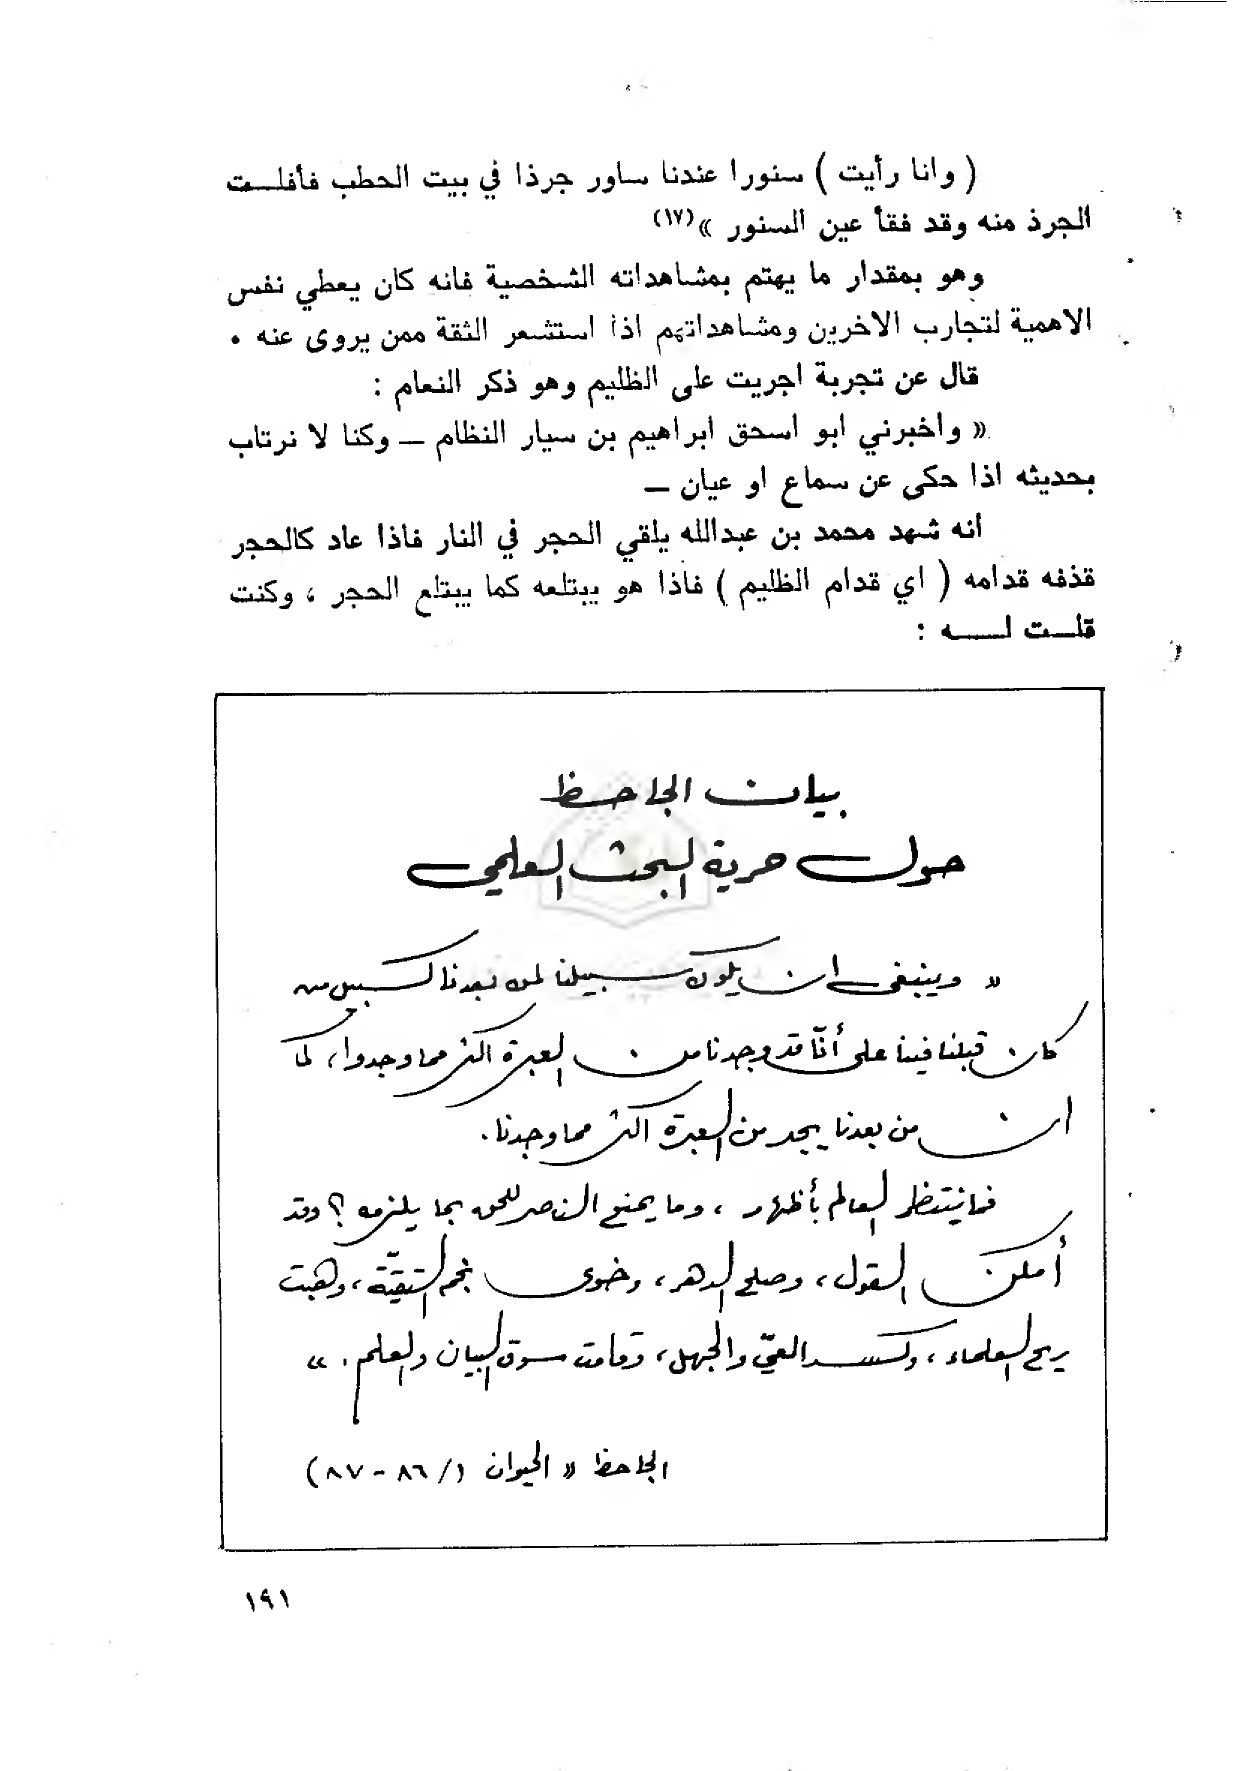 ( وانا رأيت ) سنورا عندنا ساور جرذا في بيت الحطب فأفلــت
الجرذ منه وقد فقأ عين السنور »(١٧)
وهو بمقدار ما يهتم بمشاهداته الشخصية فانه كان يعطي نفس
الاهمية لتجارب الاخرين ومشاهداتهم اذا استشعر الثقة ممن يروى عنه ٠
قال عن تجربة اجريت على الظليم وهو ذكر النعام :
« واخبرني ابو اسحق ابراهيم بن سيار النظام ــ وكنا لا نرتاب
بحديثه اذا حكى عن سماع او عيان ــ
انه شهد محمد بن عبدالله يلقي الحجر في النار فاذا عاد كالحجر
قذفه قدامه ( اي قدام الظليم ) فاذا هو يبتلعه كما يبتلع الحجر ، وكنت
قلــت لـــــه :
بيان الجاحظ
حول حرية البحث العلمي
« وينبغي ان يكون سبيلنا لمن بعدنا كسبيل من
كان قبلنا فينا على أنّا قد وجدنا من العبرة اكثر مما وجدوا، كما
ان من بعدنا يجد من العبرة اكثر مما وجدنا.
فما ينتظر العالم بأظهار ، وما يمنع الناصر للحق بما يلزمه ؟ وقد
أمكن القول، وصلح الدهر، وخوى نجم التقيّة، وهبت
ريح العلماء، وكسد العيّ والجهل، وقامت سوق البيان والعلم. »
الجاحظ « الحيوان (١/ ٨٦ - ٨٧)
١٩١